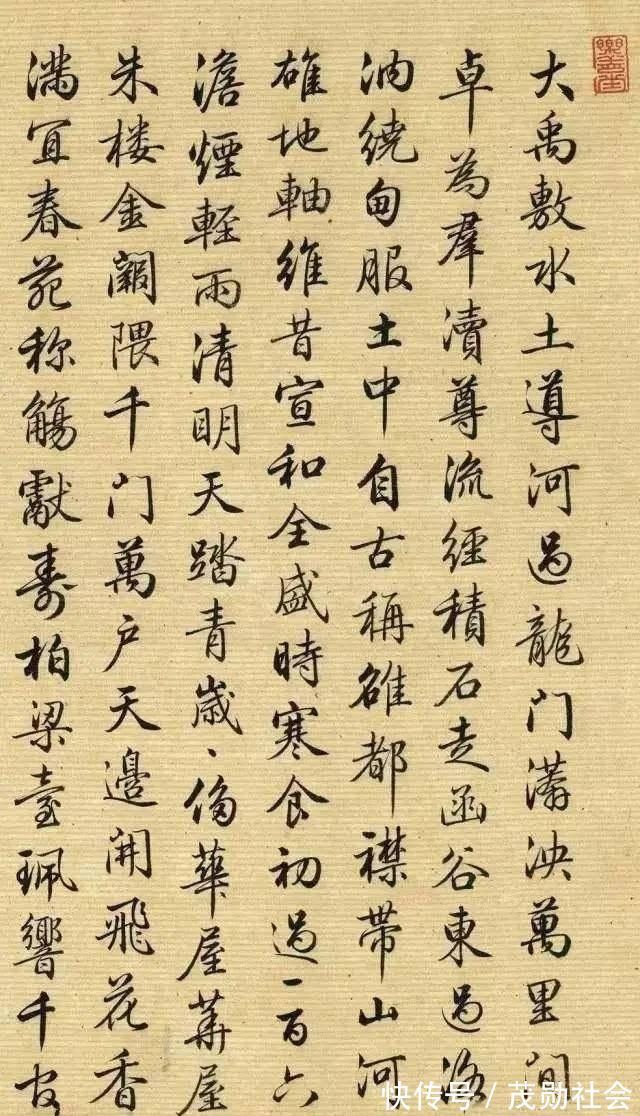 大禹敷水土導河過龍门漭泱萬里間
卓為羣瀆尊流經積石走函谷東過洛
汭繞甸服土中自古稱雄都襟帶山河
雄地軸維昔宣和全盛時寒食初過一百六
澹煙輕雨清明天踏青歲、侈華屋華屋
朱楼金闕隈千门萬户天邊開飛花香
滿宜春苑称觴獻壽柏梁臺珮響千官
樂善堂
快传号/茂勋社会